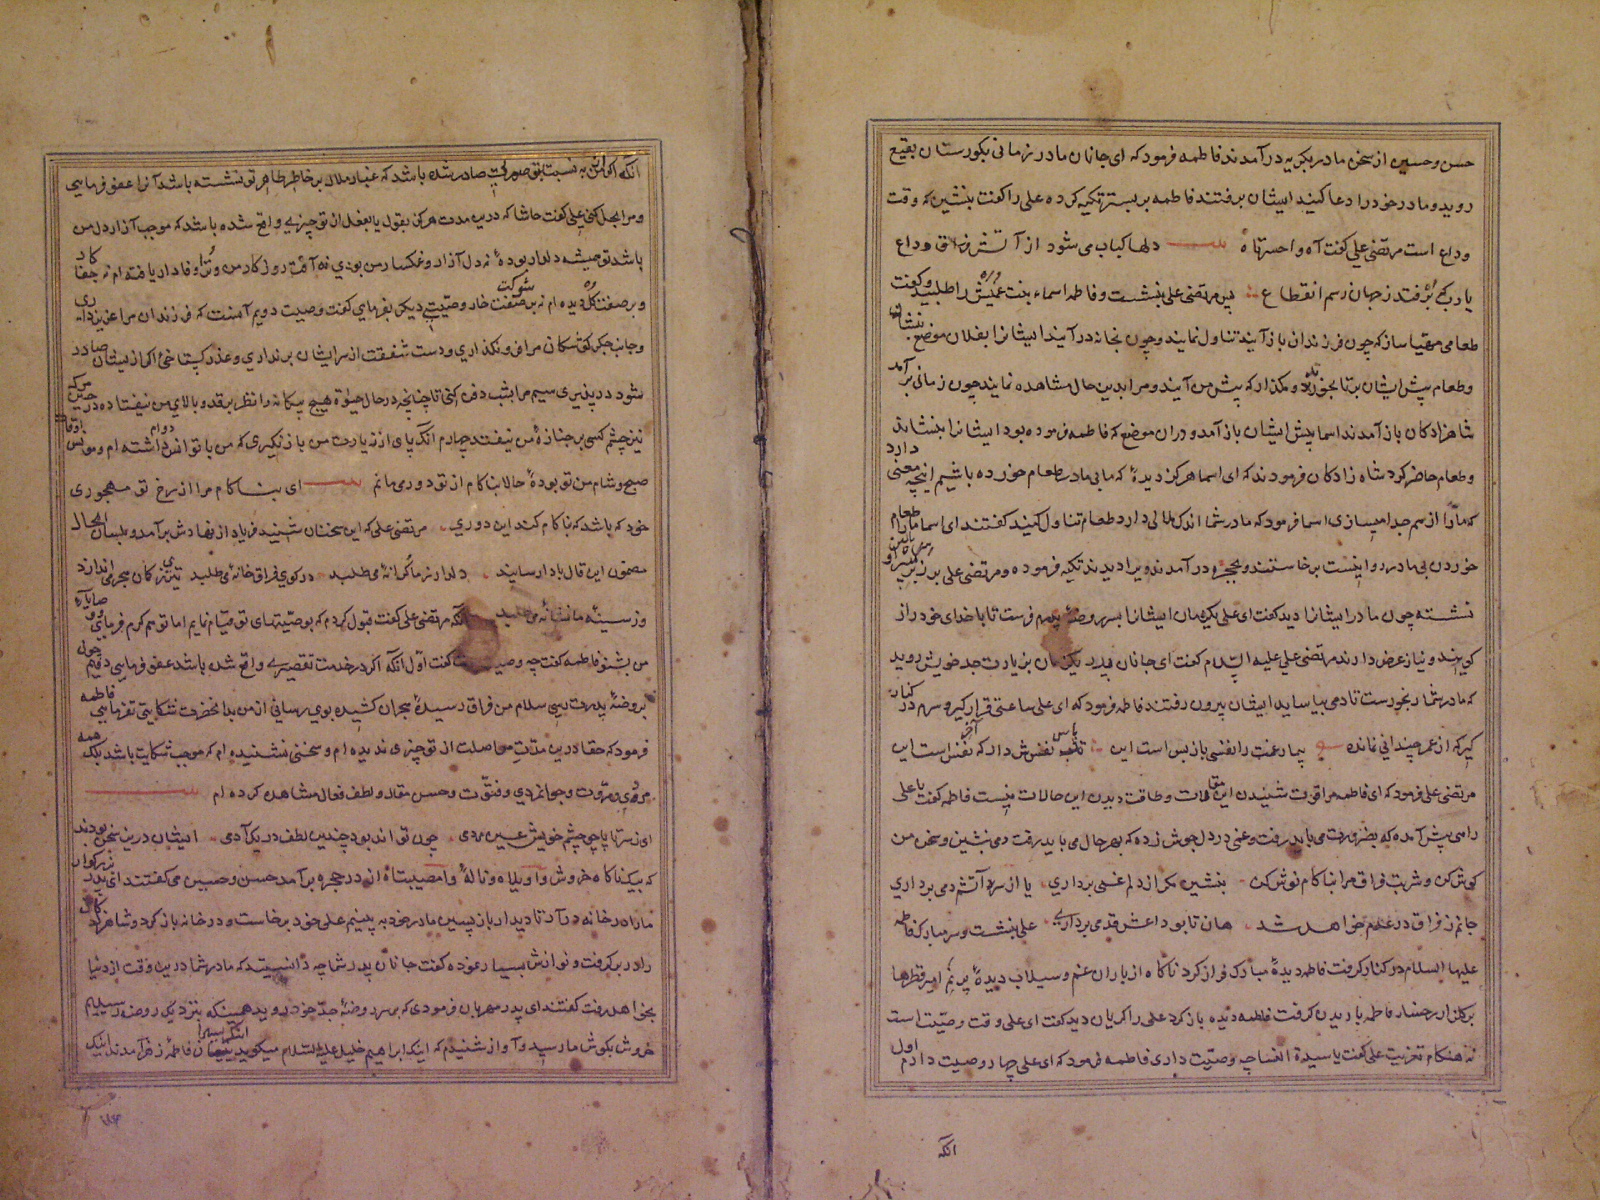 حسن و حسین از سخن مادر بگریه در آمدند فاطمه فرمود که ای جانان مادر زمانی بگورستان بقیع
روید و مادر خود را دعا کنید ایشان برفتند فاطمه بر بستر تکیه کرده علی را گفت بنشین که وقت
وداع است مرتضی علی گفت آه و احسرتاه دلها کباب می شود از آتش فراق وداع
یا رب که برفتد ز جهان رسم انقطاع پس مرتضی علی بنشست و فاطمه اسماء بنت عمیس را طلبید و گفت
طعامی مهیا ساز که چون فرزندان باز آیند تناول نمایند و چون بخانه در آیند ایشانرا بفلان موضع بنشان
و طعام پیش ایشان بر تا بخورند و مگذار که پیش من آیند و مرا بدین حال مشاهده نمایند چون زمانی بر آمد
شاهزادگان باز آمدند اسما پیش ایشان باز آمد و در آن موضع که فاطمه فرموده بود ایشانرا بنشاند
و طعام حاضر کرد شاه زادگان فرمودند که ای اسما هرگز دیدهٔ که ما بی مادر طعام خورده باشیم اینچه معنی دارد
که ما را از هم جدا میسازی اسما فرمود که مادر شما اندک ملالی دارد طعام تناول کنید گفتند ای اسما ما را طعام
خوردن بی مادر روا نیست برخاستند و بحجره در آمدند و ویرا دیدند تکیه فرموده و مرتضی علی بر زبر بالین او
نشسته چون مادر ایشانرا دید گفت ای علی یکزمان ایشانرا بسر روضهٔ پدرم فرست تا با خدای خود راز
گویند و نیاز عرض دارند مرتضی علی علیه السلام گفت ای جانان پدر یکزمان بزیارت جد خویش روید
که مادر شما رنجورست تا دمی بیاساید ایشان بیرون رفتند فاطمه فرمود که ای علی ساعتی قرار گیر و سرم در کنار
گیر که از عمر چندانی نمانده بیمار غمت را نفسی باز پس است این نفس دار که آخر نفس است این
مرتضی علی فرمود که ای فاطمه مرا قوت شنیدن این مقامات و طاقت دیدن این حالات نیست فاطمه گفت یا علی
راهی پیش آمده که بضرورت می باید رفت و غمی در دل جوش زده که بهر حال می باید رفت دمی بنشین و سخن من
گوش کن و شربت فراق مرا بناکام نوش کن بنشین مگر از دلم غمی برداری یا از سر آتشم دمی برداری
جانم ز فراق در عدم خواهد شد هان تا بوداعش قدمی برداری علی بنشست و سر مبارک فاطمه
علیها السلام در کنار گرفت فاطمه دیدهٔ مبارک فراز کرد ناگاه از باران غم و سیلاب دیدهٔ پر نم امیر قطرها
بر گلزار رخسار فاطمه باریدن گرفت فاطمه دیده باز کرد علی را گریان دید گفت ای علی وقت وصیت است
نه هنگام تعزیت علی گفت یا سیدة النسا چه وصیت داری فاطمه فرمود که ای علی چهار وصیت دارم اول
انکه
انکه اگر از من به نسبت تو صورتی صادر شده باشد که غبار ملال بر خاطر طاهر تو نشسته باشد آنرا عفو فرمایی
و مرا بحل کنی علی گفت حاشا که درین مدت هرگز بقول یا بفعل از تو چیزی واقع شده باشد که موجب آزار دل من
باشد تو همیشه دلدار بوده نه دل آزار و غمگسار من بودی نه آفت روزگار من و ترا وفادار یافته ام نه جفا کار
و بر صفت گل دیده ام نه بر صفت خار وصیتی دیگر بفرمای گفت وصیت دویم آنست که فرزندان مرا عزیز داری
و جانب جگر گوشگان مرا فرو نگذاری و دست شفقت از سر ایشان برنداری و عذر گستاخی اگر ازیشان صادر
شود درپذیری سیم مرا بشب دفن کنی تا چنانچه در حال حیوة هیچ بیگانه را نظر بر قد و بالای من نیفتاده در حین مرگ
نیز چشم کسی بر جنازهٔ من نیفتد چهارم انکه پای از زیارت من باز نگیری که من با تو انس داشته ام و مونس اوقات
صبح و شام من تو بودهٔ حالا بناکام از تو دور می مانم ای بناکام مرا از رخ تو مهجوری
خود که باشد که بناکام کند این دوری مرتضی علی که این سخنان شنید فریاد از نهادش بر آمد و بلسان الحال
مضمون این مقال بادا رسانید دلدار ز ما کرانهٔ می طلبد در کوی فراق خانهٔ می طلبد تیری ز کمان هجر می اندازد
وز سینهٔ ما نشانهٔ می طلبد انگه مرتضی علی گفت قبول کردم که بوصیتهای تو قیام نمایم اما تو هم کرم فرمای و وصایاء
من بشنو فاطمه گفت چه وصیت گفت اول انکه اگر در خدمت تقصیری واقع شده باشد عفو فرمایی دویم چون
بروضهٔ پدرت رسی سلام من فراق رسیدهٔ هجران کشیده بوی رسانی از من بدانحضرت شکایتی نفرمایی فاطمه
فرمود که حقا درین مدت مواصلت از تو چیزی ندیده ام و سخنی نشنیده ام که موجب شکایت باشد بلکه همه
مروت و جوانمردی و فتوت و حسن مقال و لطف فعال مشاهده کرده ام
ای ز سر تا پا چو چشم خویش عین مردمی چون تواند بود چندین لطف در یک آدمی ایشان درین سخن بودند
که بیکناگاه خروش واویلاه و نالهٔ وامصیبتاه از در حجره بر آمد حسن و حسین می گفتند ای پدر بزرگوار
ما را در خانه در آر تا دیدار بازپسین مادر خود به بینیم علی خود برخاست و در خانه باز کرد و شاهزادگان
را در بر گرفت و نوازش بسیار نموده گفت جانان پدر شما چه دانستید که مادر شما درین وقت از دنیا
بخواهد رفت گفتند ای پدر مهربان فرمودی که بر سر روضهٔ جد خود روید همینکه بنزدیک روضه رسیدیم
خروش بگوش ما رسید و آواز شنیدم که اینک ابراهیم خلیل علیه السلام میگوید یتیمان فاطمهٔ زهرا آمدند اینک